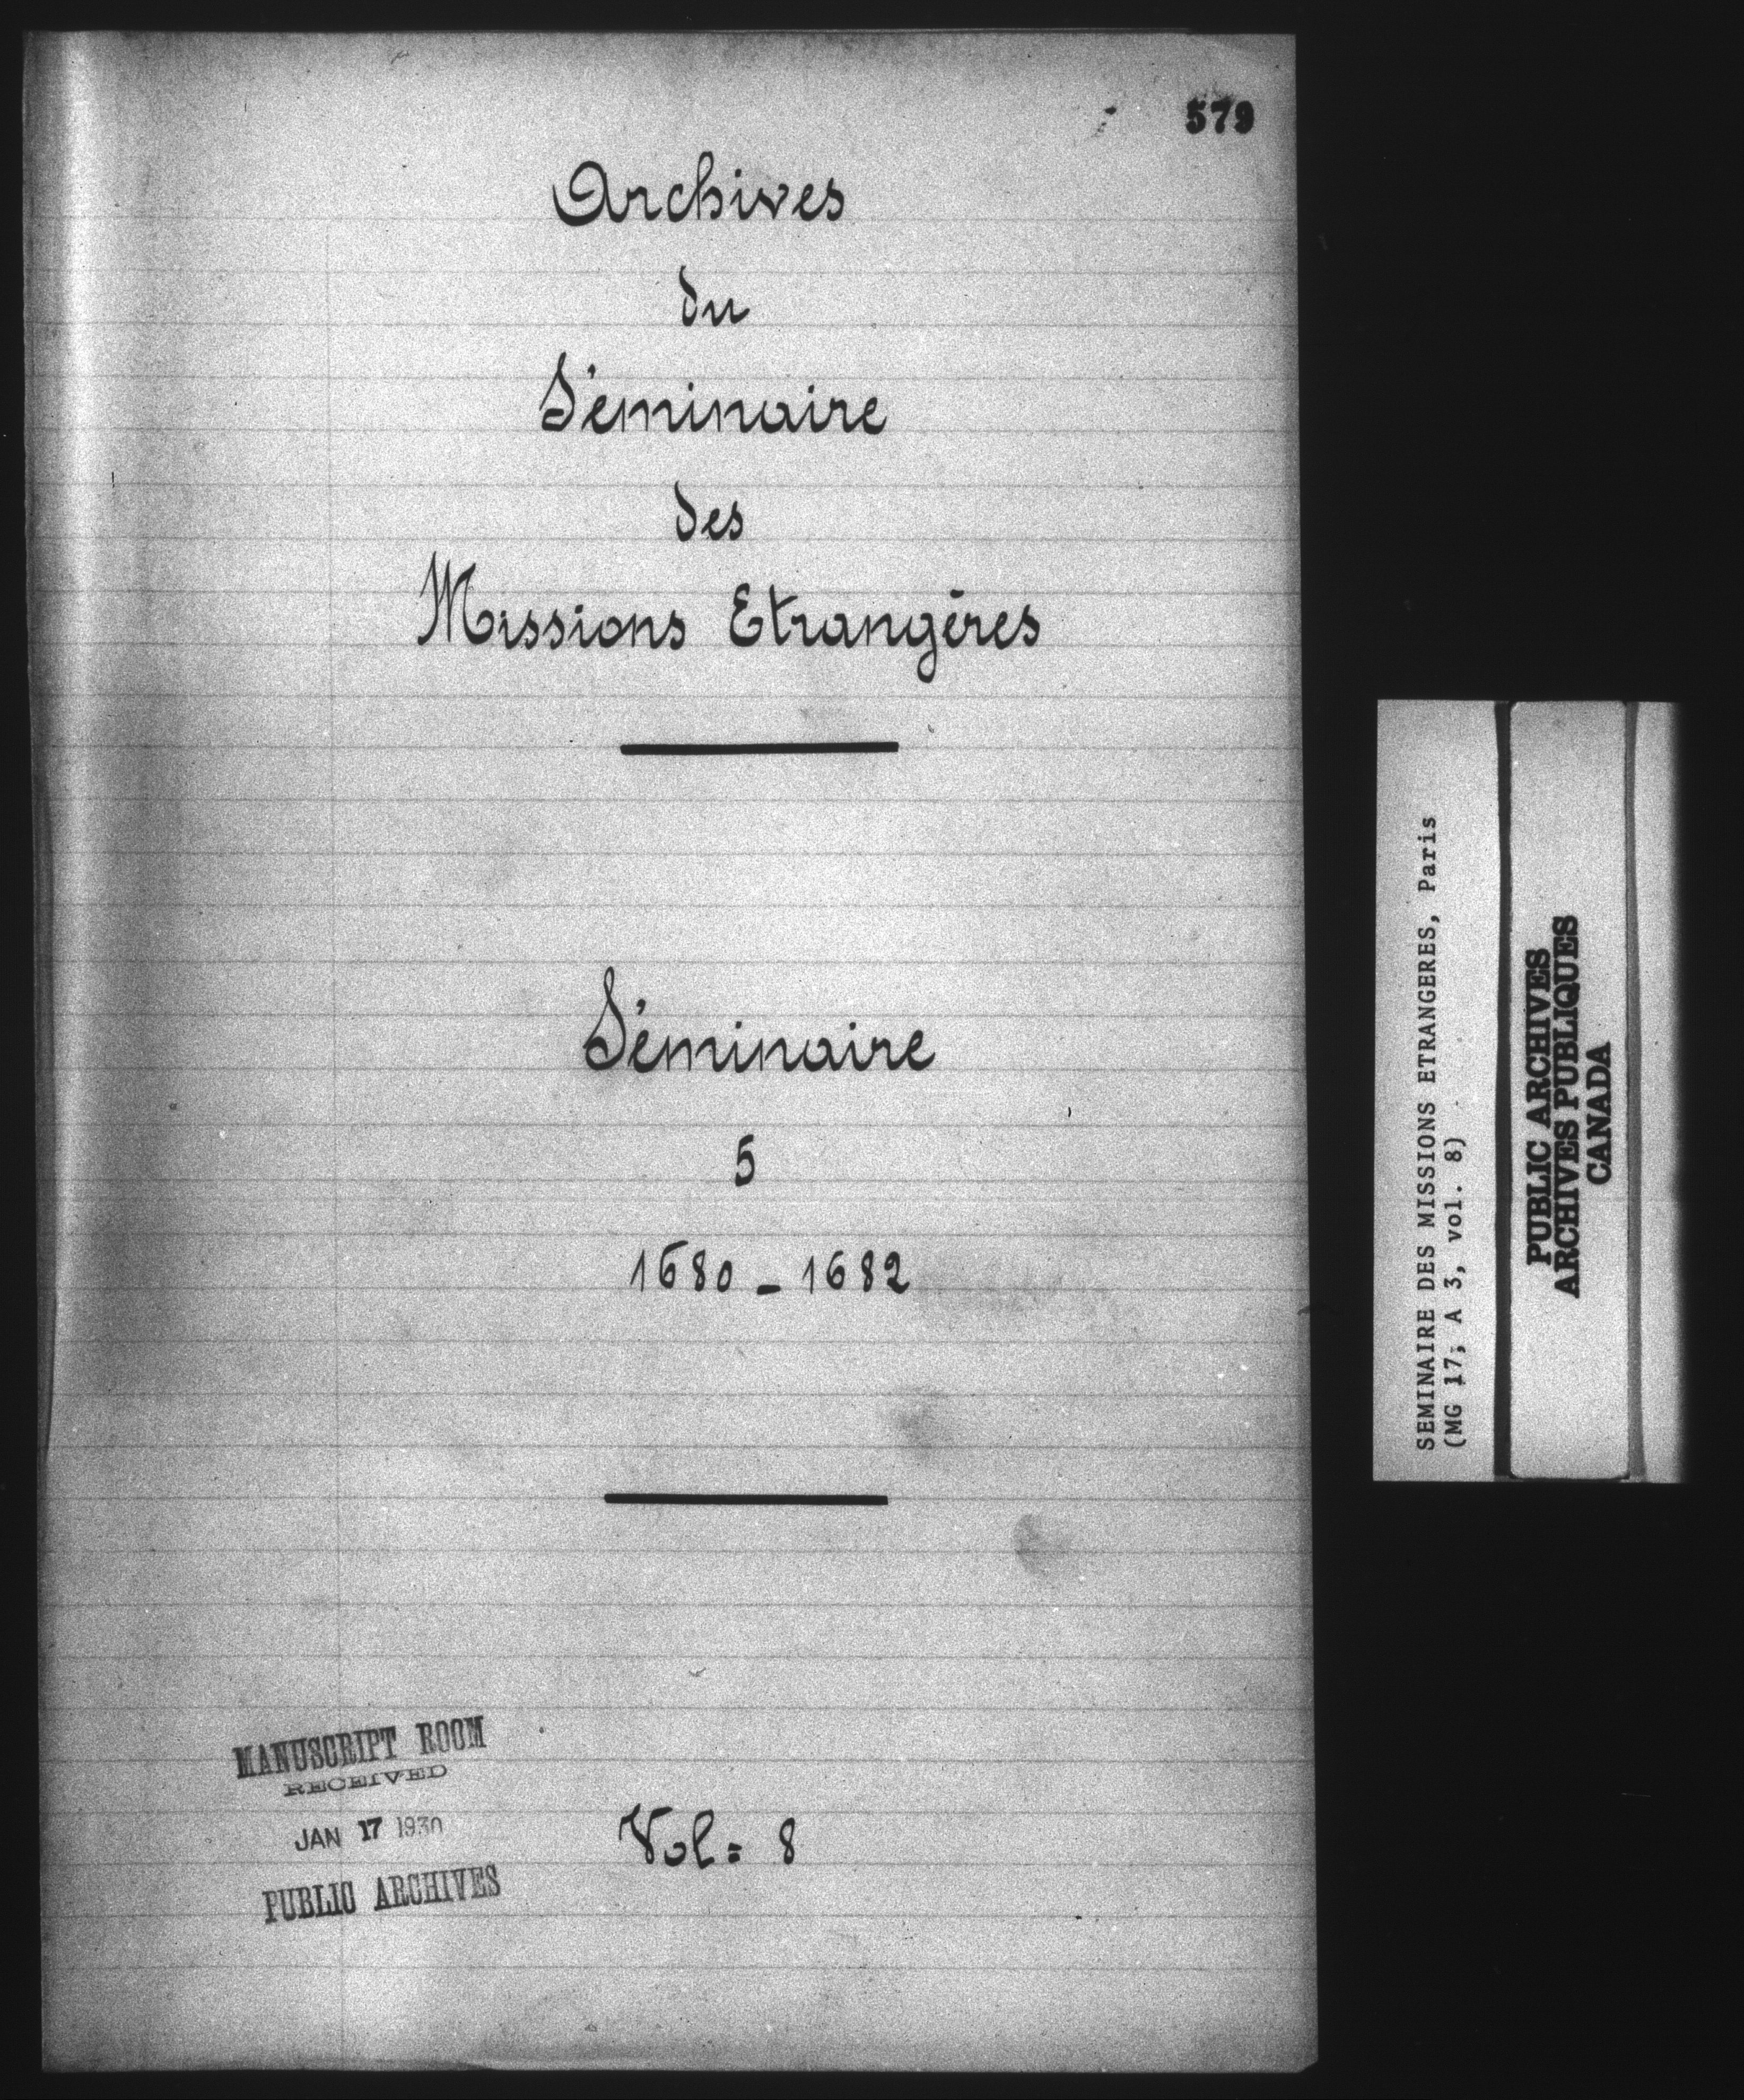 579
Archives
du
Séminaire
des
Missions Etrangères
Séminaire
5
1680 - 1682
MANUSCRIPT ROOM
RECEIVED
JAN 17 1930
PUBLIC ARCHIVES
Vol= 8
SEMINAIRE DES MISSIONS ETRANGERES, Paris
(MG 17, A 3, vol. 8)
PUBLIC ARCHIVES
ARCHIVES PUBLIQUES
CANADA